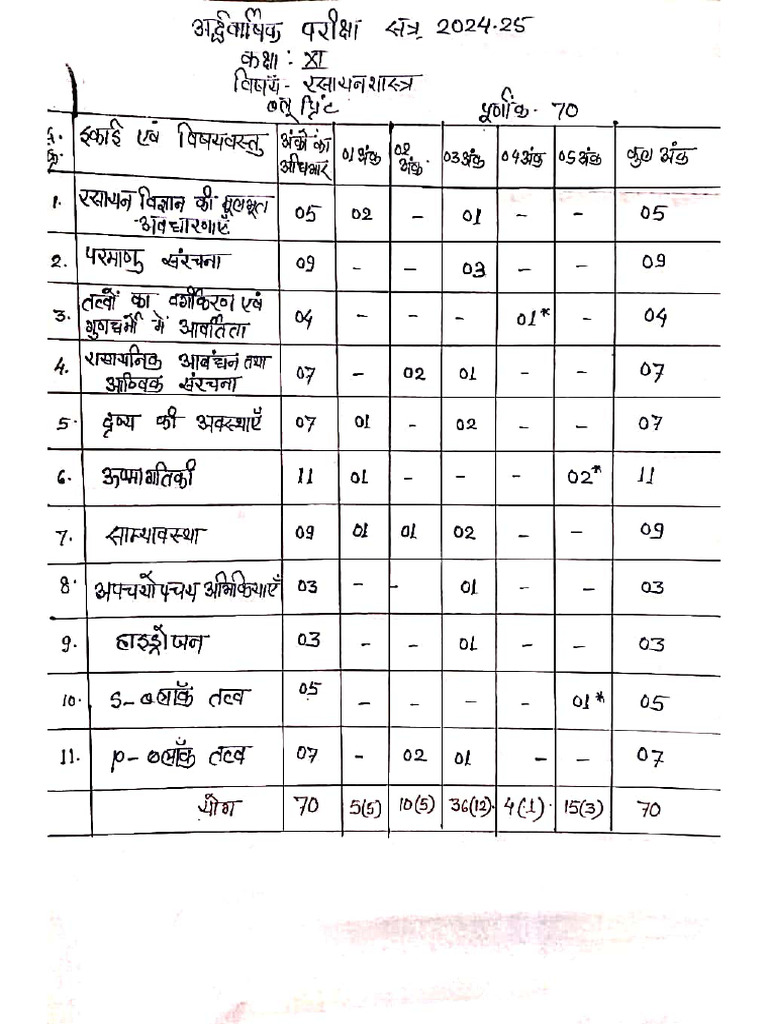 अर्द्धवार्षिक परीक्षा सत्र 2024-25
कक्षा : XI
विषय - रसायनशास्त्र
ब्लू प्रिंट पूर्णांक - 70
स. क्र. इकाई एवं विषयवस्तु अंकों का अधिभार 01 अंक 02 अंक 03 अंक 04 अंक 05 अंक कुल अंक
1. रसायन विज्ञान की मूलभूत अवधारणाएँ 05 02 - 01 - - 05
2. परमाणु संरचना 09 - - 03 - - 09
3. तत्वों का वर्गीकरण एवं गुणधर्मों में आवर्तिता 04 - - - 01* - 04
4. रासायनिक आबंधन तथा आण्विक संरचना 07 - 02 01 - - 07
5. द्रव्य की अवस्थाएँ 07 01 - 02 - - 07
6. ऊष्मागतिकी 11 01 - - - 02* 11
7. साम्यावस्था 09 01 01 02 - - 09
8. अपचयोपचय अभिक्रियाएँ 03 - - 01 - - 03
9. हाइड्रोजन 03 - - 01 - - 03
10. S-ब्लॉक तत्व 05 - - - - 01* 05
11. p-ब्लॉक तत्व 07 - 02 01 - - 07
योग 70 5(5) 10(5) 36(12) 4(1) 15(3) 70